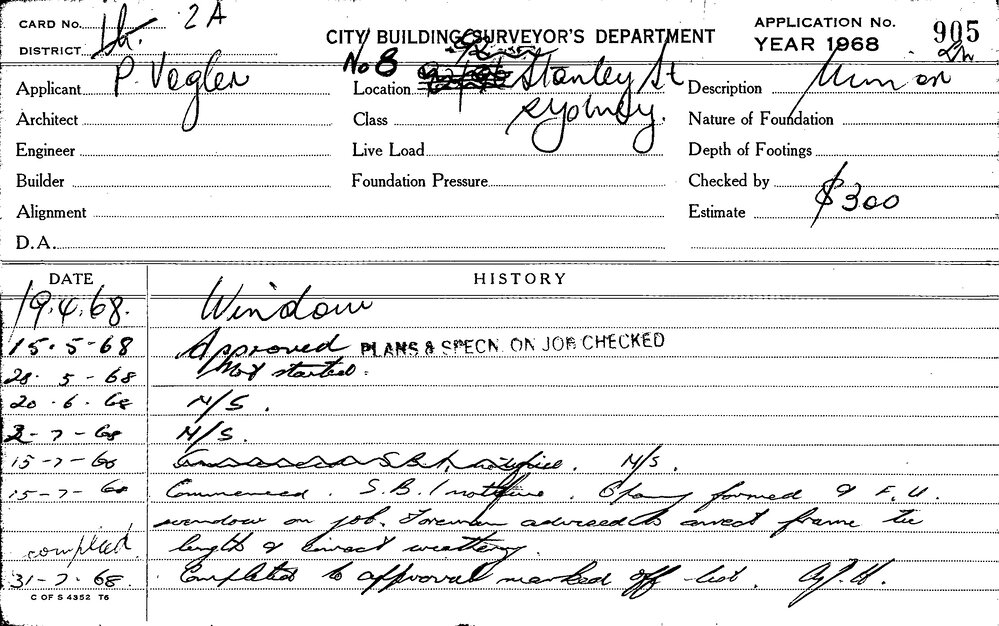 CARD No. 2A
DISTRICT
CITY BUILDING SURVEYOR'S DEPARTMENT
APPLICATION No. 905
YEAR 1968
Applicant P. Vegler
No 8
Location Stanley St
Sydney.
Description
Architect
Class
Nature of Foundation
Engineer
Live Load
Depth of Footings
Builder
Foundation Pressure
Checked by
Alignment
Estimate $300
D.A.
DATE HISTORY
19.4.68. Window
15.5-68 Approved PLANS & SPECN. ON JOB CHECKED
28. 5 - 68 Not started.
20.6.68 N/S.
2-7-68 N/S.
15-7-68 N/S.
15-7-68 Commenced. S.B.1 formed &
window on job. Foreman advised to frame
length &
complied
31-7.68. Completed to approval marked off list.
C OF S 4352 T6